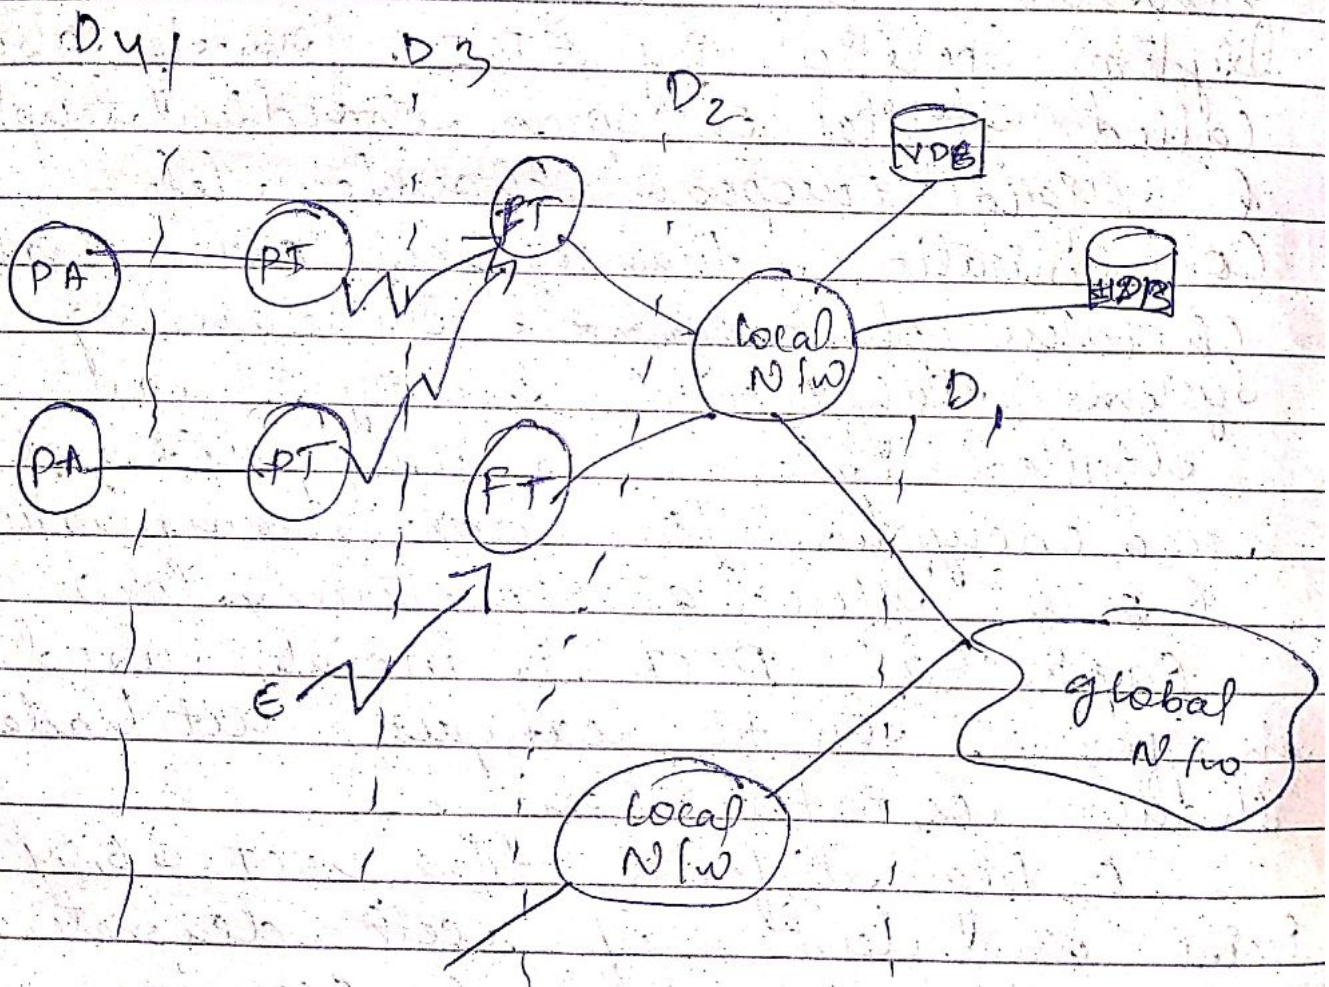 D4
D3
D2
VDB
FT
PA
PT
HDB
Local
N/w
D1
PA
PT
FT
E
global
N/w
Local
N/w